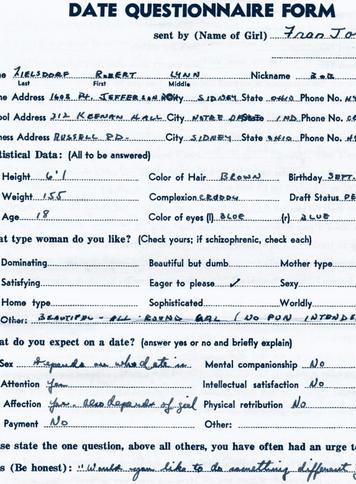 DATE QUESTIONNAIRE FORM
sent by (Name of Girl) Fran Jo
me ZIELSDORF ROBERT LYNN Nickname BOB
Last First Middle
me Address 1608 Pt. JEFFERSON City SIDNEY State OHIO Phone No. HY
ool Address 312 KEENAN HALL City NOTRE DAME State IND Phone No. CE
ness Address RUSSELL RD. City SIDNEY State OHIO Phone No. HY
tistical Data: (All to be answered)
Height 6'1 Color of Hair BROWN Birthday SEPT.
Weight 155 Complexion CRUDDY Draft Status PE
Age 18 Color of eyes (l) BLUE (r) BLUE
at type woman do you like? (Check yours; if schizophrenic, check each)
Dominating Beautiful but dumb Mother type
Satisfying Eager to please ✓ Sexy
Home type Sophisticated Worldly
Other: BEAUTIFUL - ALL-ROUND GAL (NO PUN INTENDE
at do you expect on a date? (answer yes or no and briefly explain)
Sex depends on who date is Mental companionship No
Attention Yes Intellectual satisfaction No
Affection Yes. Also depends of girl Physical retribution No
Payment No Other:
se state the one question, above all others, you have often had an urge to
s (Be honest): "Would you like to do something different